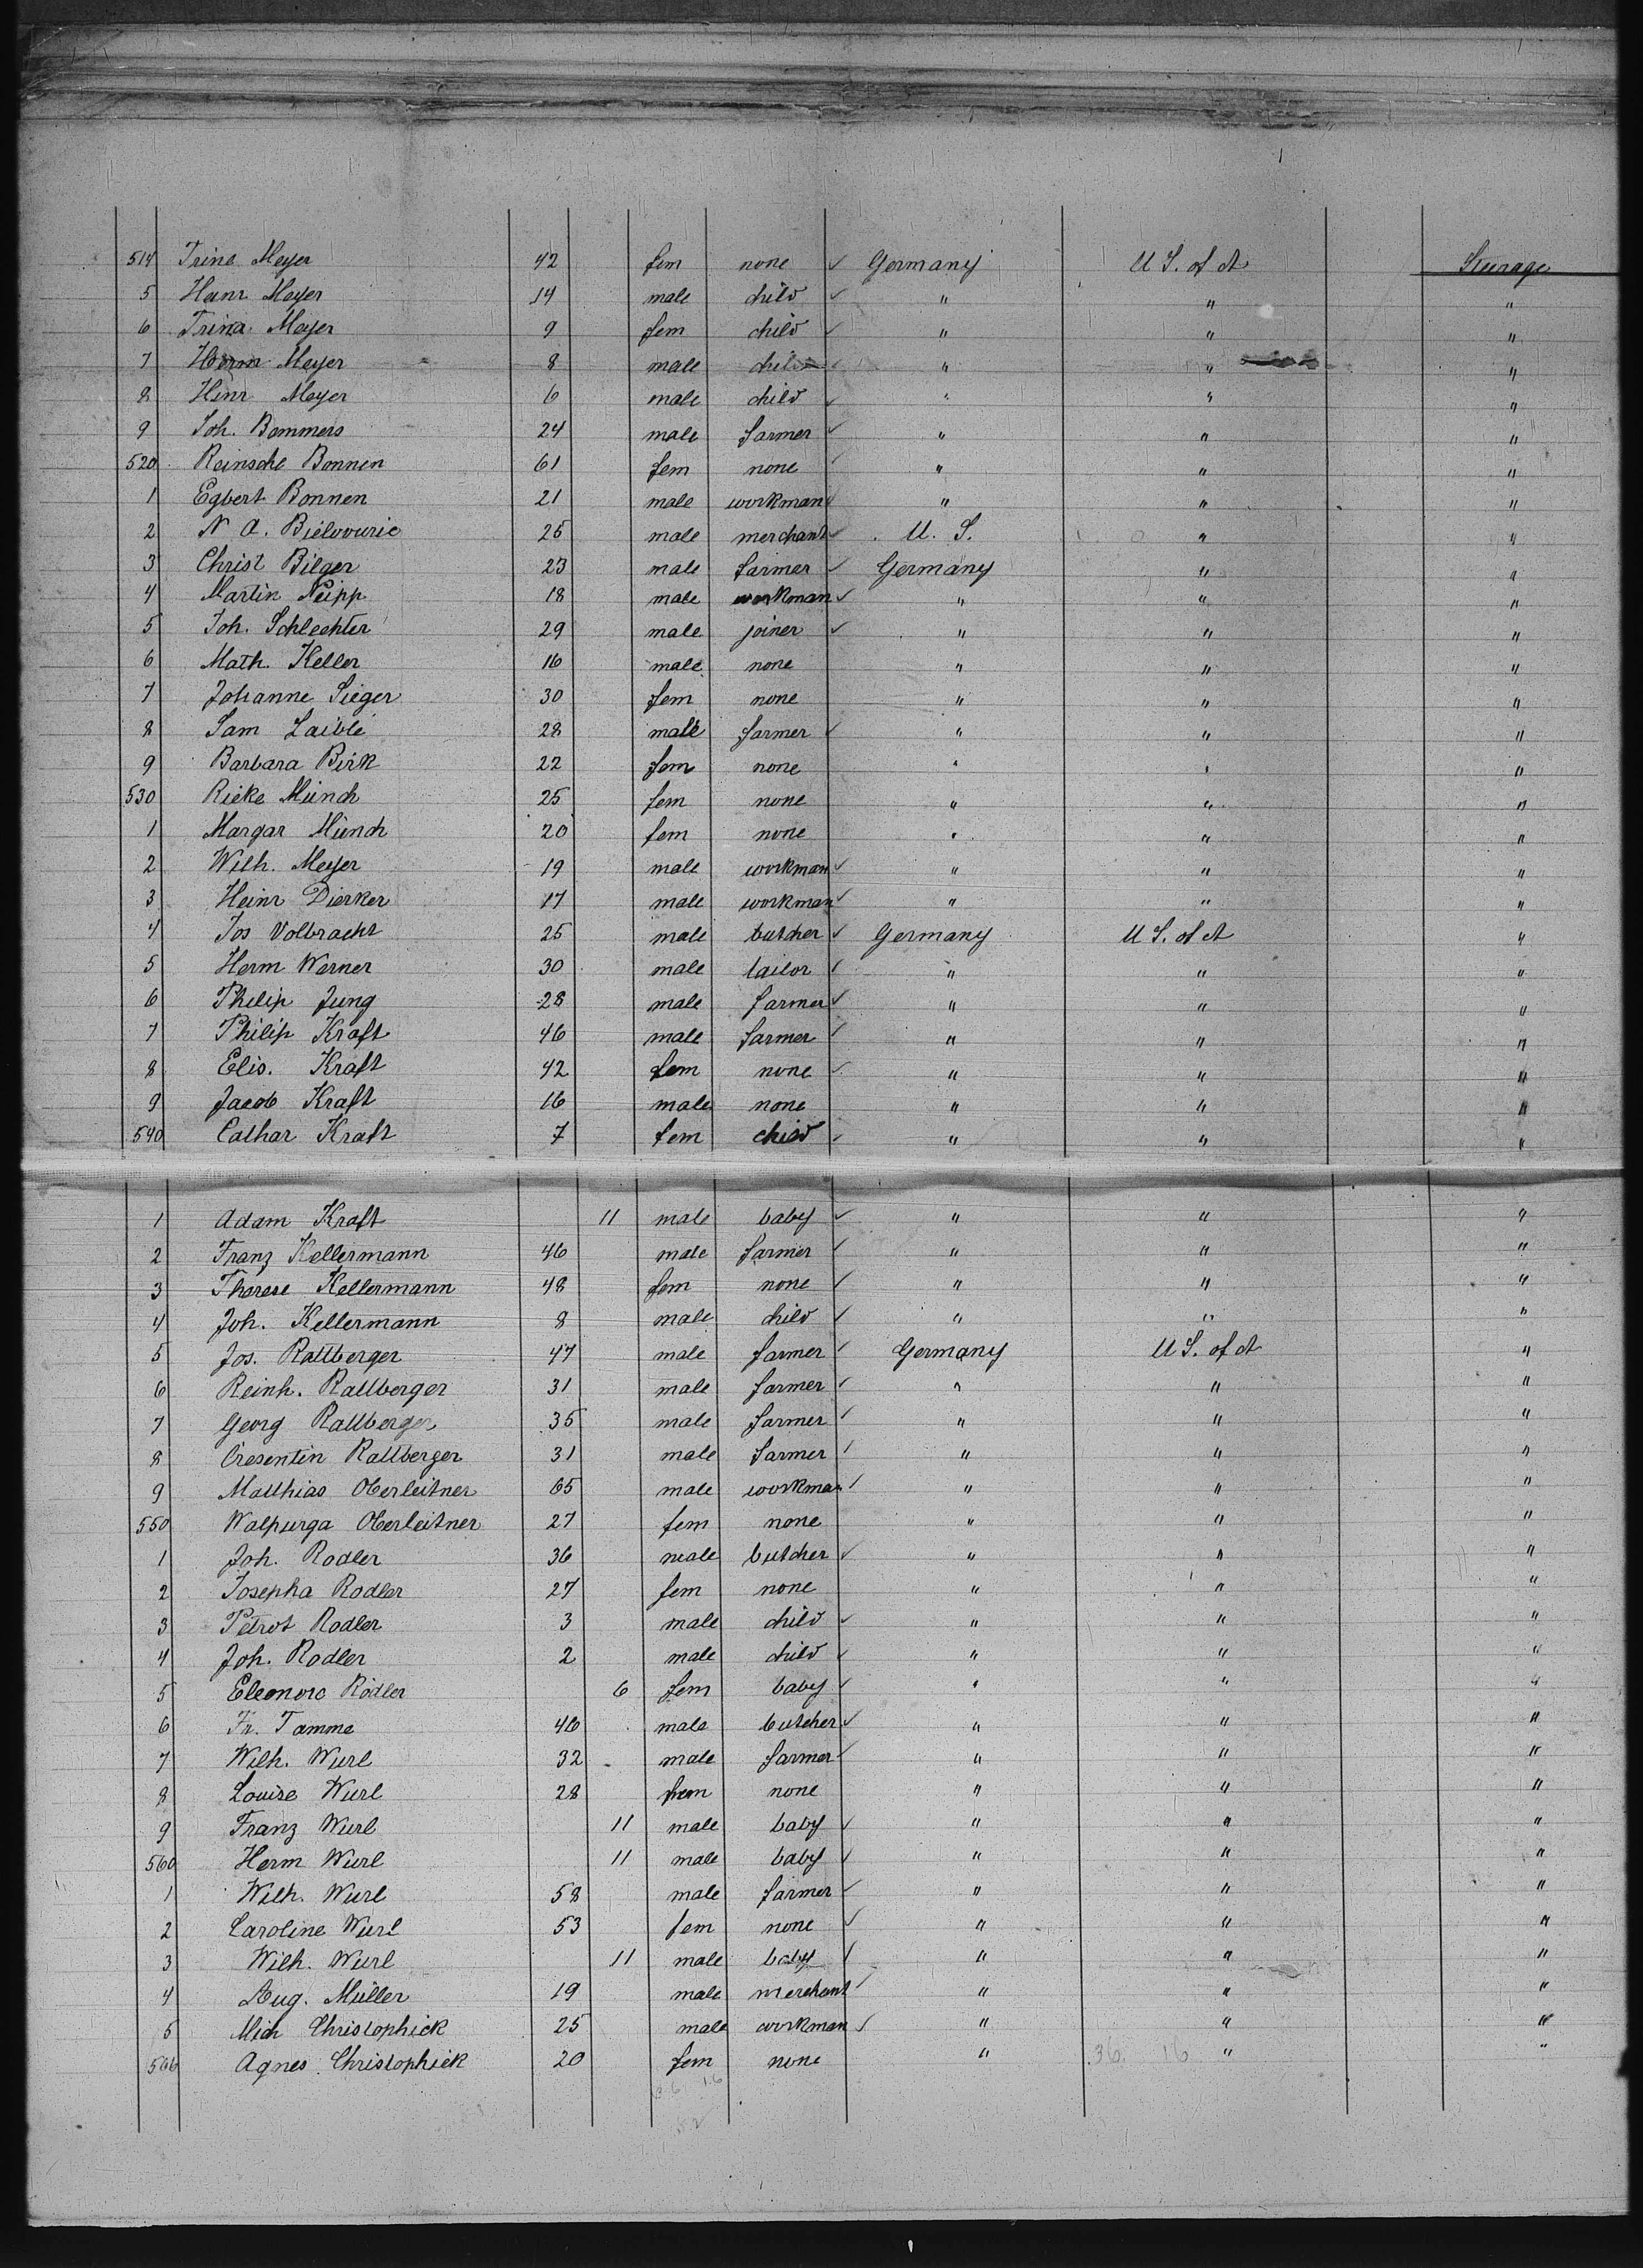 514 Trine Meyer 42 fem none ✓ Germany U S. of A Steerage
5 Heinr Meyer 14 male child ✓ " " "
6 Trina Meyer 9 fem child ✓ " " "
7 Herm Meyer 8 male child ✓ " " "
8 Hinr Meyer 6 male child ✓ " " "
9 Joh. Bommers 24 male farmer ✓ " " "
520 Reinsche Bonnen 61 fem none " " "
1 Egbert Bonnen 21 male workman " " "
2 N A. Bielovuric 25 male merchant ✓ U. S. " "
3 Christ Bilger 23 male farmer ✓ Germany " "
4 Martin Neipp 18 male workman ✓ " " "
5 Joh. Schlechter 29 male joiner ✓ " " "
6 Math. Keller 16 male none " " "
7 Johanne Sieger 30 fem none " " "
8 Sam Laible 28 male farmer ✓ " " "
9 Barbara Birk 22 fem none " " "
530 Rieke Münch 25 fem none " " "
1 Margar Münch 20 fem none " " "
2 Wilh. Meyer 19 male workman ✓ " " "
3 Heinr Dierker 17 male workman ✓ " " "
4 Jos Volbracht 25 male butcher ✓ Germany U S. of A "
5 Herm Werner 30 male tailor ✓ " " "
6 Philip Jung 28 male farmer ✓ " " "
7 Philip Kraft 46 male farmer ✓ " " "
8 Elis. Kraft 42 fem none ✓ " " "
9 Jacob Kraft 16 male none " " "
540 Cathar Kraft 7 fem child ✓ " " "
1 Adam Kraft 11 male baby ✓ " " "
2 Franz Kellermann 46 male farmer ✓ " " "
3 Therese Kellermann 48 fem none ✓ " " "
4 Joh. Kellermann 8 male child ✓ " " "
5 Jos. Rattberger 47 male farmer ✓ Germany U S. of A "
6 Reinh. Rattberger 31 male farmer ✓ " " "
7 Georg Rattberger 35 male farmer ✓ " " "
8 Cresentin Rattberger 31 male farmer ✓ " " "
9 Matthias Oberleitner 65 male workman ✓ " " "
550 Walpurga Oberleitner 27 fem none " " "
1 Joh. Rodler 36 male butcher ✓ " " "
2 Josepha Rodler 27 fem none " " "
3 Petrot Rodler 3 male child ✓ " " "
4 Joh. Rodler 2 male child ✓ " " "
5 Eleonore Rodler 6 fem baby ✓ " " "
6 Fr. Tamme 46 male butcher ✓ " " "
7 Wilh. Wurl 32 male farmer ✓ " " "
8 Louise Wurl 28 fem none " " "
9 Franz Wurl 11 male baby ✓ " " "
560 Herm Wurl 11 male baby ✓ " " "
1 Wilh. Wurl 58 male farmer ✓ " " "
2 Caroline Wurl 53 fem none ✓ " " "
3 Wilh. Wurl 11 male baby ✓ " " "
4 Aug. Müller 19 male merchant ✓ " " "
5 Mich Christophick 25 male workman ✓ " " "
566 Agnes Christophick 20 fem none " 36. 16 " "